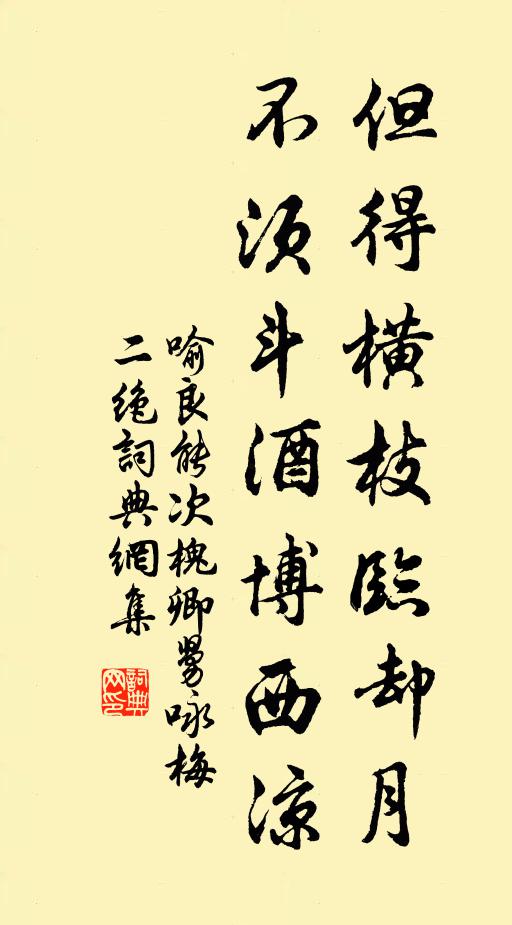 但得橫枝臨却月
不須斗酒博西涼
喻良能次槐卿舅咏梅
二絶詞典網集
詞典網印